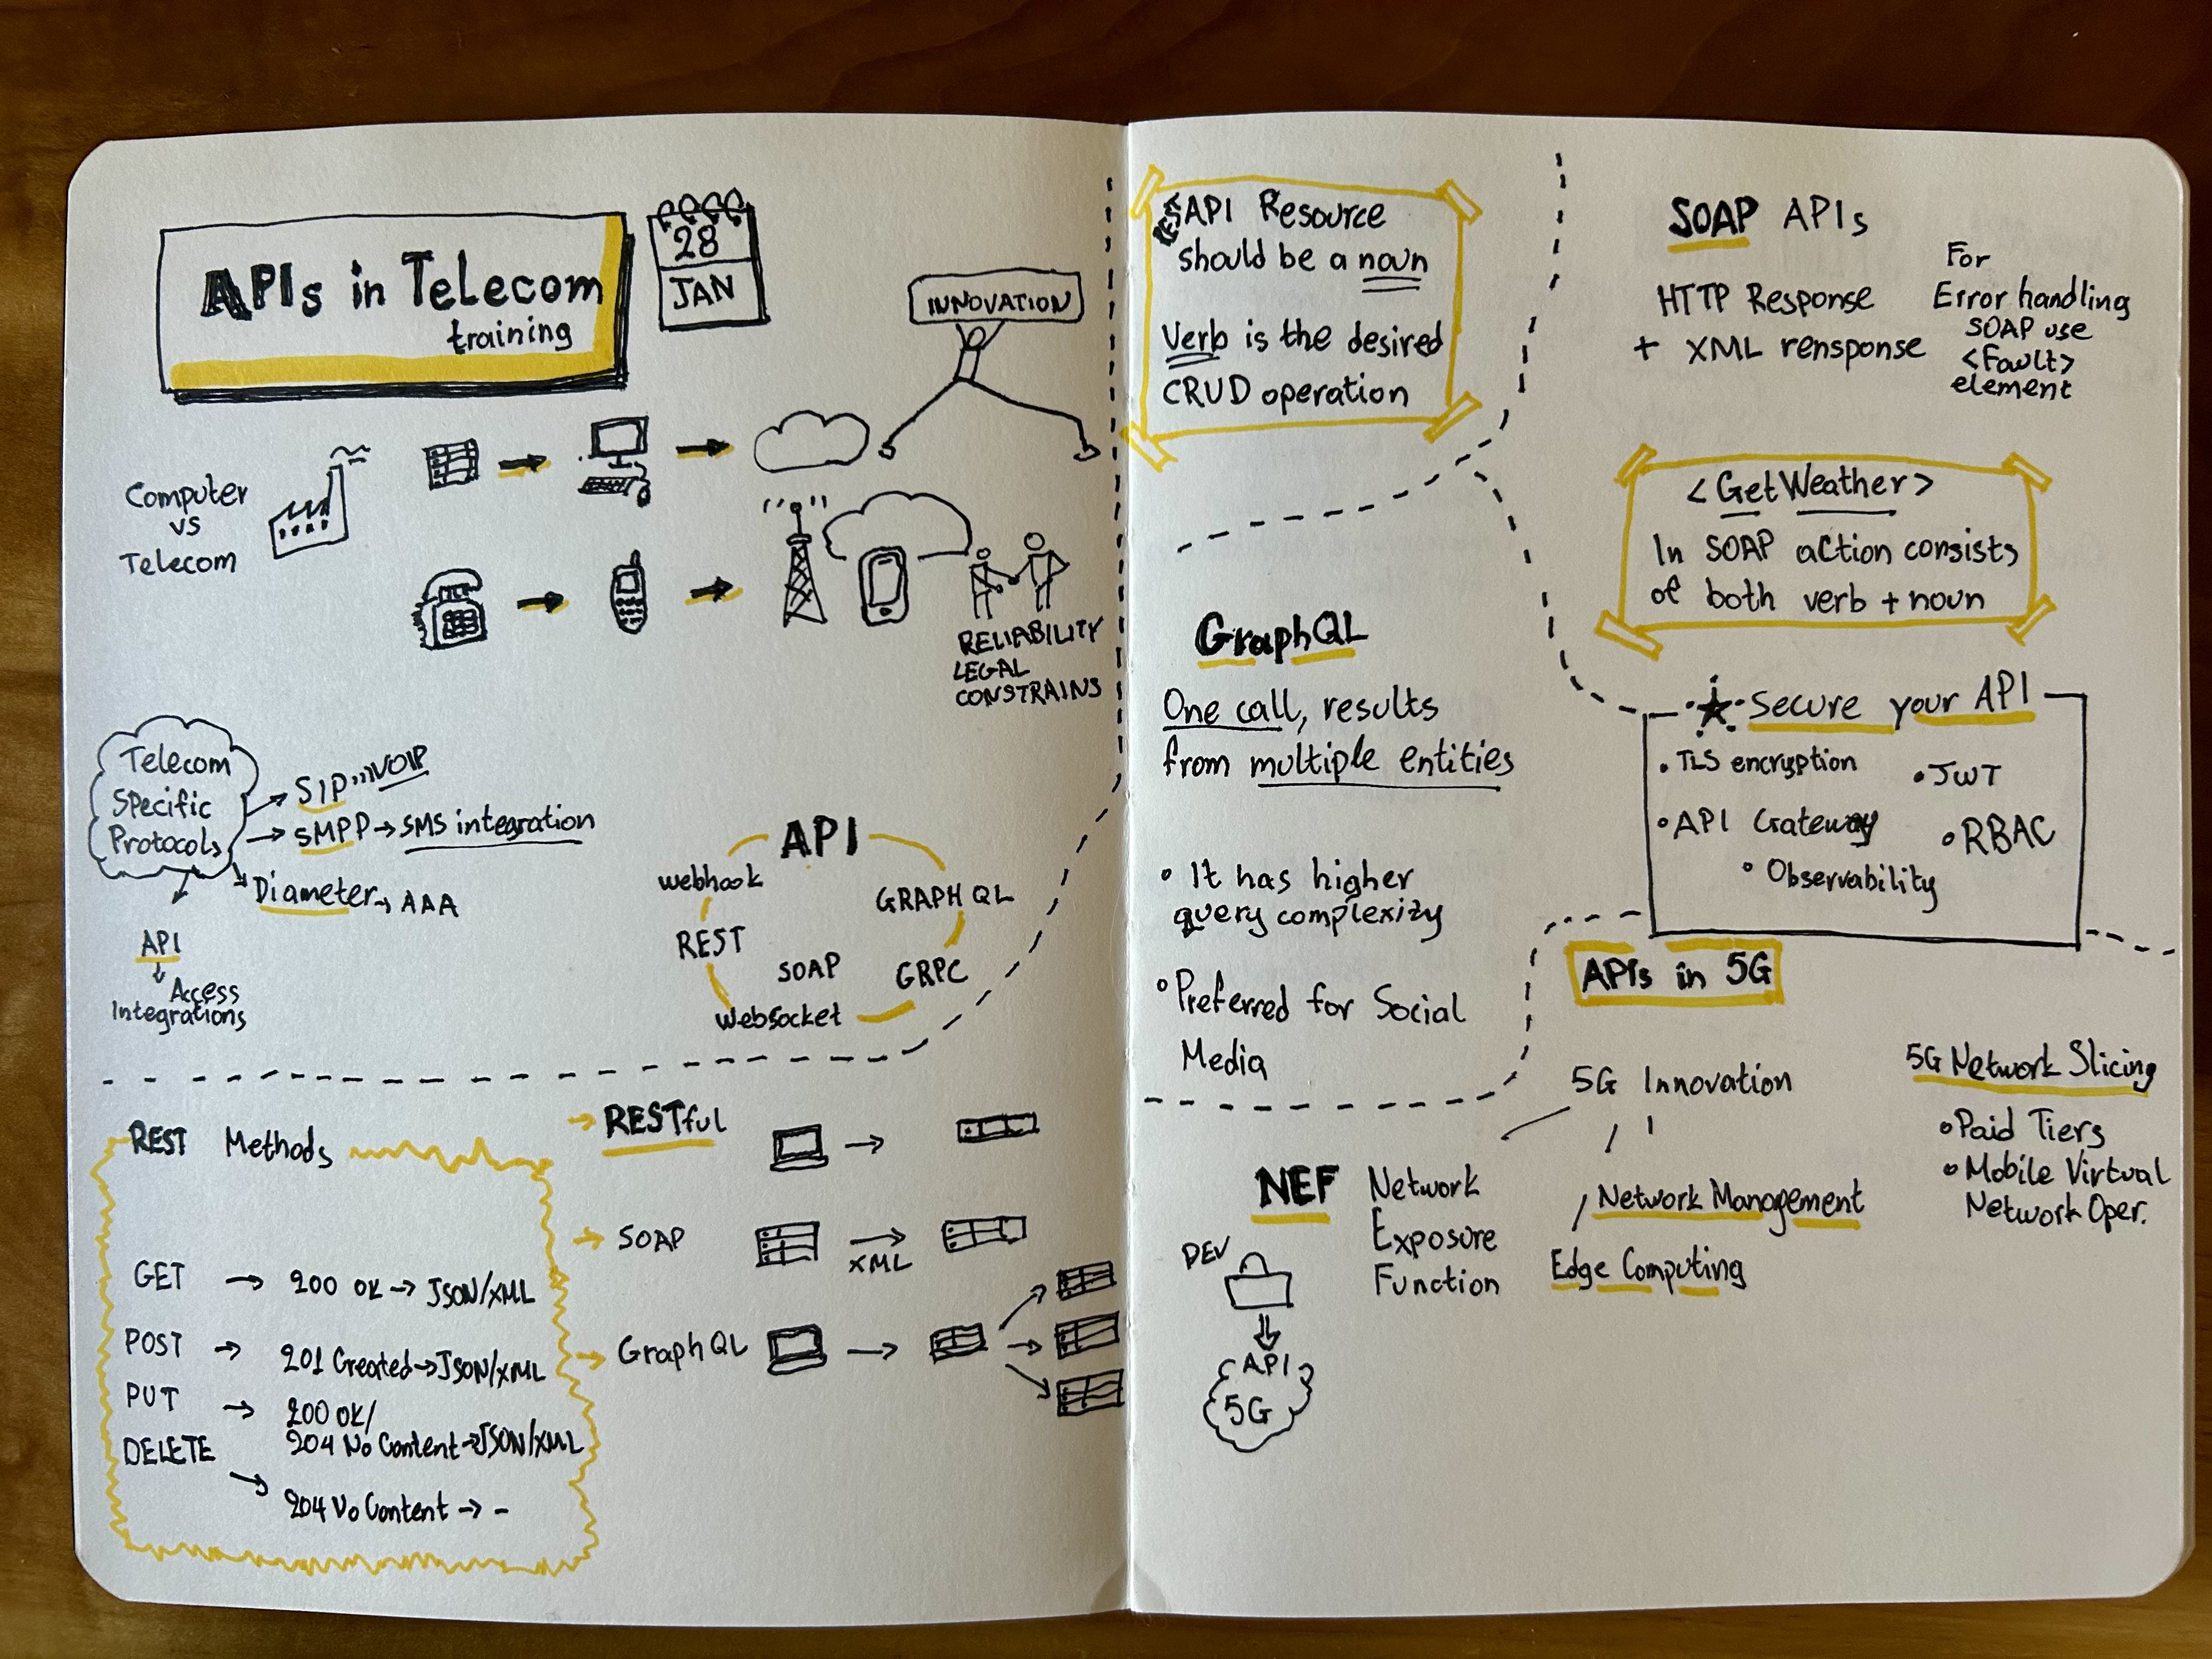 APIs in Telecom
training
28
JAN
INNOVATION
Computer
vs
Telecom
RELIABILITY
LEGAL
CONSTRAINS
Telecom
Specific
Protocols
SIP VOIP
SMPP → SMS integration
Diameter → AAA
API
Access
Integrations
API
webhook
GRAPH QL
REST
SOAP
GRPC
Websocket
REST Methods
GET → 200 OK → JSON/XML
POST → 201 Created → JSON/XML
PUT → 200 OK/
204 No Content → JSON/XML
DELETE
204 No Content → -
→ RESTful
→ SOAP
XML
→ GraphQL
REST API Resource
should be a noun
Verb is the desired
CRUD operation
SOAP APIs
HTTP Response
+ XML rensponse
For
Error handling
SOAP use
<Fault>
element
<GetWeather>
In SOAP action consists
of both verb + noun
GraphQL
One call, results
from multiple entities
• It has higher
query complexity
• Preferred for Social
Media
Secure your API
• TLS encryption
• JWT
• API Gateway
• RBAC
• Observability
APIs in 5G
5G Innovation
Network Management
Edge Computing
5G Network Slicing
• Paid Tiers
• Mobile Virtual
Network Oper.
NEF Network
Exposure
Function
DEV
API
5G